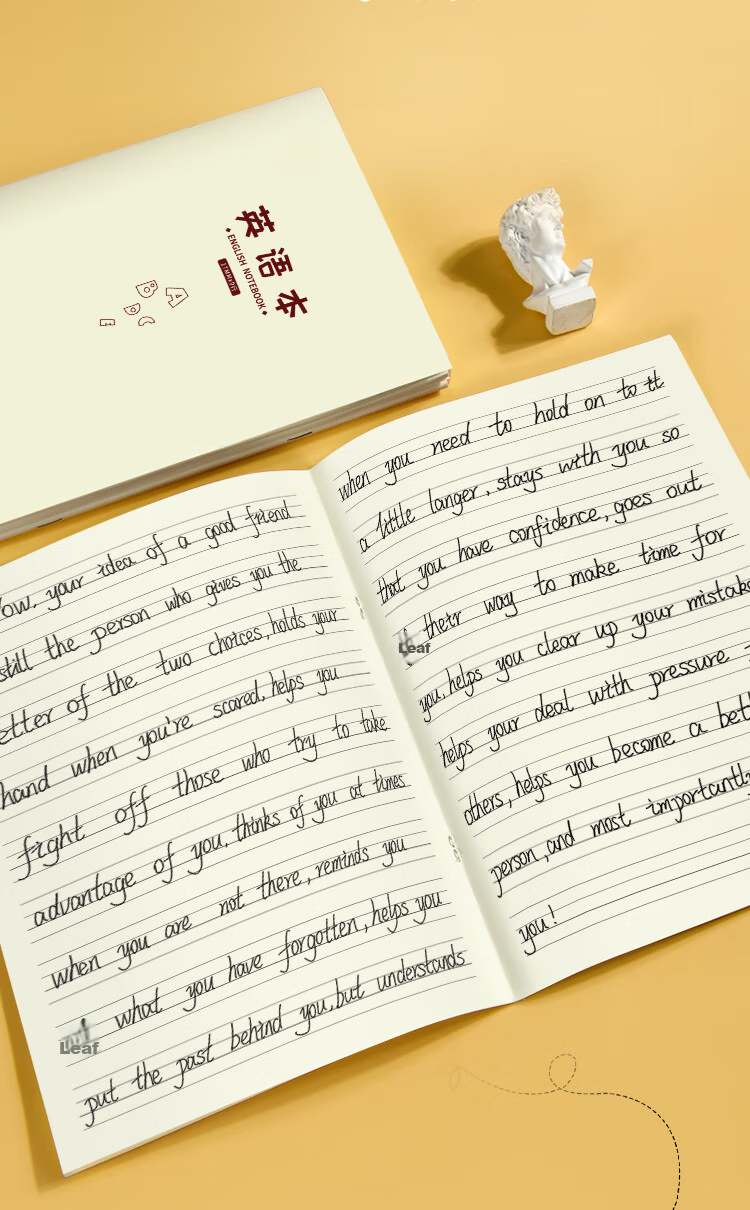 英语本
ENGLISH NOTEBOOK
A
B
C
D
E
your idea of a good friend
still the person who gives you the
etter of the two choices, holds your
hand when you're scared, helps you
fight off those who try to take
advantage of you, thinks of you at times
when you are not there, reminds you
what you have forgotten, helps you
Leaf
put the past behind you, but understands
when you need to hold on to it
a little langer, stays with you so
that you have confidence, goes out
their way to make time for
Leaf
you, helps you clear up your mistake
helps your deal with pressure
others, helps you become a bet
person, and most importantly
you!